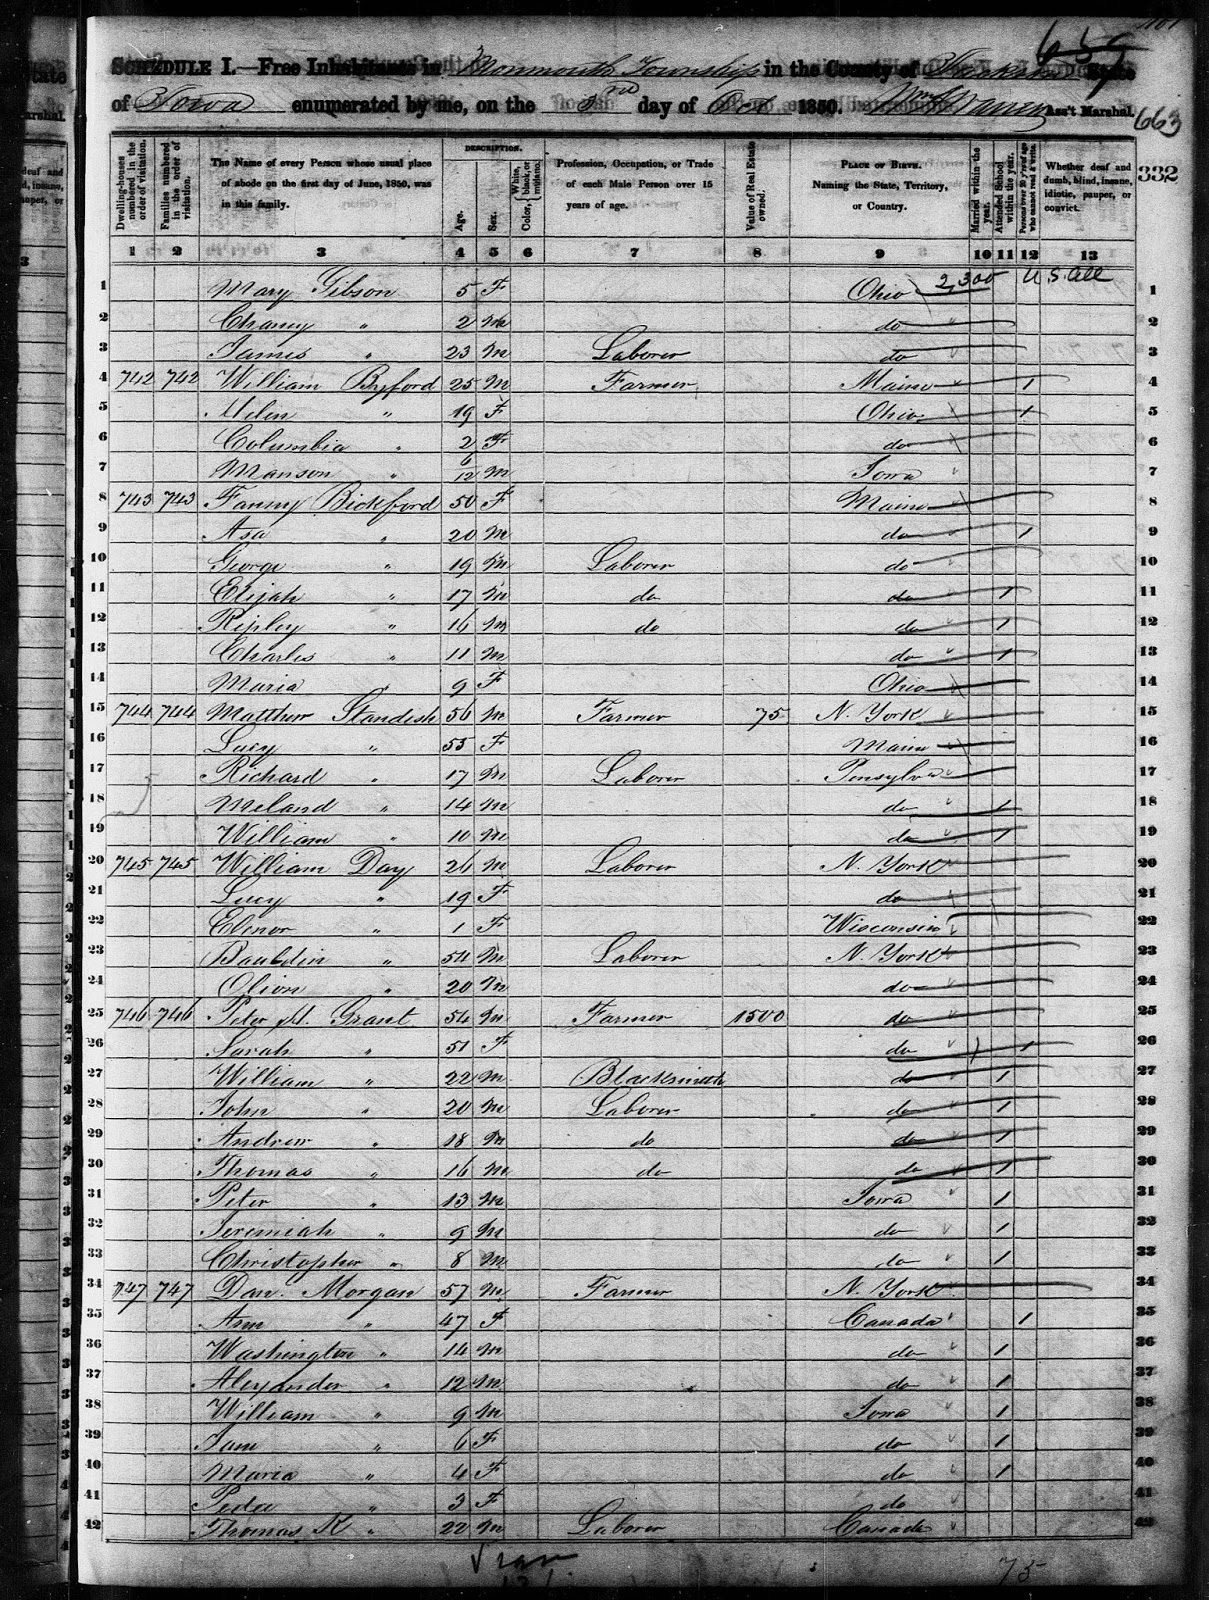 659
SCHEDULE I.—Free Inhabitants in Monmouth Township in the County of Jackson State
of Iowa enumerated by me, on the 3rd day of Oct 1850. Wm A Warren Ass't Marshal.
663
332
Dwelling-houses numbered in the order of visitation.
Families numbered in the order of visitation.
The Name of every Person whose usual place of abode on the first day of June, 1850, was in this family.
DESCRIPTION.
Age.
Sex.
Color, White, black, or mulatto.
Profession, Occupation, or Trade of each Male Person over 15 years of age.
Value of Real Estate owned.
PLACE OF BIRTH. Naming the State, Territory, or Country.
Married within the year.
Attended School within the year.
Persons over 20 y'rs of age who cannot read & write
Whether deaf and dumb, blind, insane, idiotic, pauper, or convict.
1 2 3 4 5 6 7 8 9 10 11 12 13
2,300 U.S. all
1 Mary Gibson 5 F Ohio 1
2 Chancy " 2 M do 2
3 James " 23 M Laborer do 3
4 742 742 William Byford 25 M Farmer Maine 1 4
5 " 19 F Ohio 1 5
6 Columbia " 2 F do 6
7 Manson " 6/12 M Iowa 7
8 743 743 Fanny Bickford 50 F Maine 8
9 Asa " 20 M do 1 9
10 George " 19 M Laborer do 10
11 Elijah " 17 M do do 1 11
12 Ripley " 16 M do do 1 12
13 Charles " 11 M do 1 13
14 Maria " 9 F Ohio 14
15 744 744 Matthew Standish 56 M Farmer 75 N. York 15
16 Lucy " 55 F Maine 16
17 Richard " 17 M Laborer Pensylva 17
18 Meland " 14 M do 1 18
19 William " 10 M do 1 19
20 745 745 William Day 26 M Laborer N. York 20
21 Lucy " 19 F do 21
22 Elenor " 1 F Wisconsin 22
23 " 54 M Laborer N. York 23
24 " 20 M do 24
25 746 746 Peter Grant 54 M Farmer 1500 do 25
26 Sarah " 51 F do 1 26
27 William " 22 M Blacksmith do 1 27
28 John " 20 M Laborer do 1 28
29 Andrew " 18 M do do 1 29
30 Thomas " 16 M do do 1 30
31 Peter " 13 M Iowa 1 31
32 Jeremiah " 9 M do 1 32
33 Christopher " 8 M do 1 33
34 747 747 Dan. Morgan 57 M Farmer N. York 34
35 Ann " 47 F Canada 1 35
36 Washington " 14 M do 1 36
37 Alexander " 12 M do 1 37
38 William " 9 M Iowa 1 38
39 " 6 F do 1 39
40 Maria " 4 F do 1 40
41 " 3 F do 41
42 Thomas K " 22 M Laborer Canada 42
75